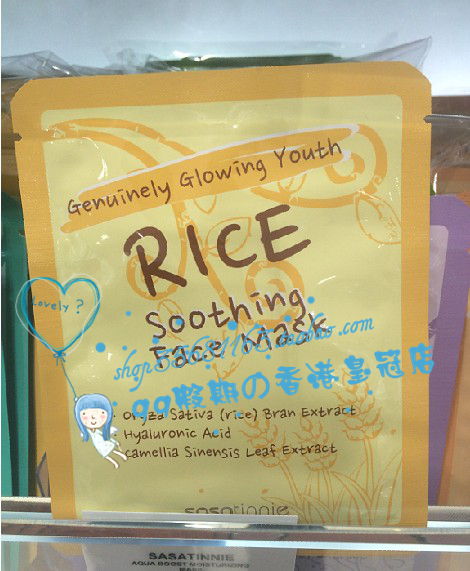 Genuinely Glowing Youth
RICE
Lovely ?
Soothing
Face Mask
qq暇期の香港皇冠店
· Oryza Sativa (rice) Bran Extract
· Hyaluronic Acid
· Camellia Sinensis Leaf Extract
sasatinnie
SASATINNIE
AQUA BOOST MOISTURISING